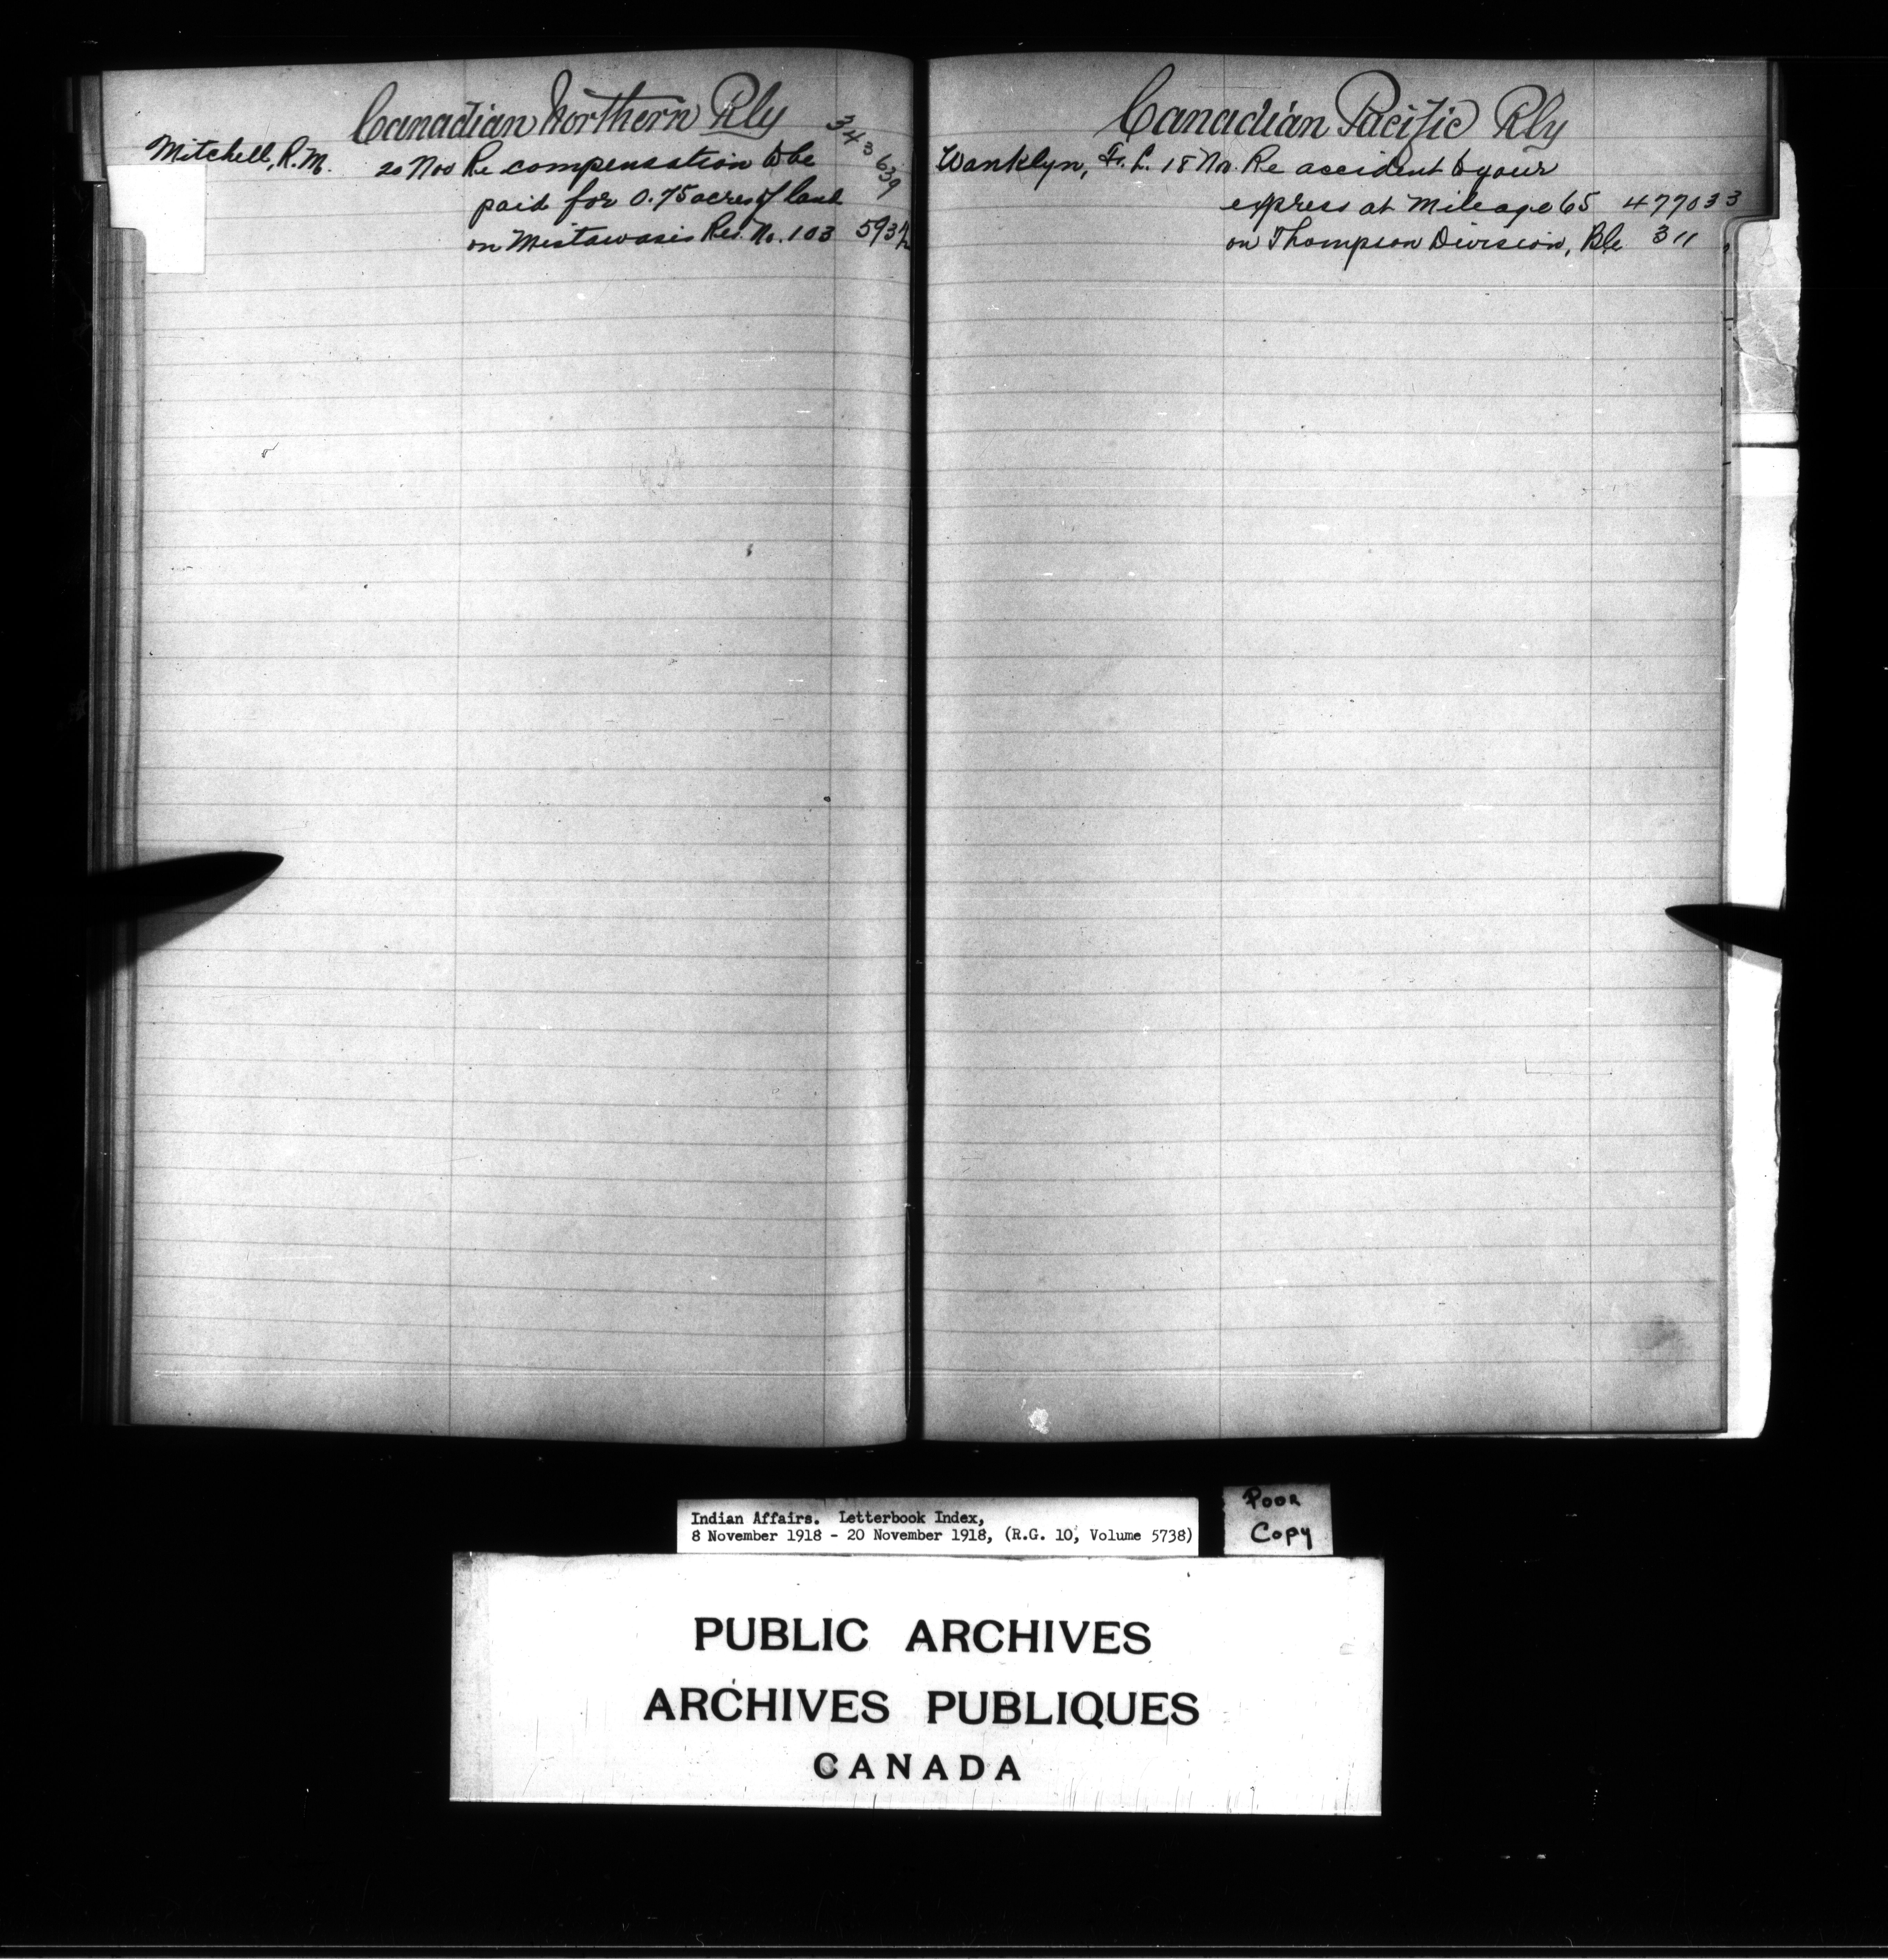 Canadian Northern Rly
343639
Mitchell, R. M. 20 Nov Re compensation to be
paid for 0.75 acres of land
on Mistawasis Res. No. 103 593
Canadian Pacific Rly
Wanklyn, F. L. 18 No. Re accident to your
express at Mileage 65 477033
on Thompson Division, 311
Indian Affairs. Letterbook Index,
8 November 1918 - 20 November 1918, (R.G. 10, Volume 5738)
Poor
Copy
PUBLIC ARCHIVES
ARCHIVES PUBLIQUES
CANADA